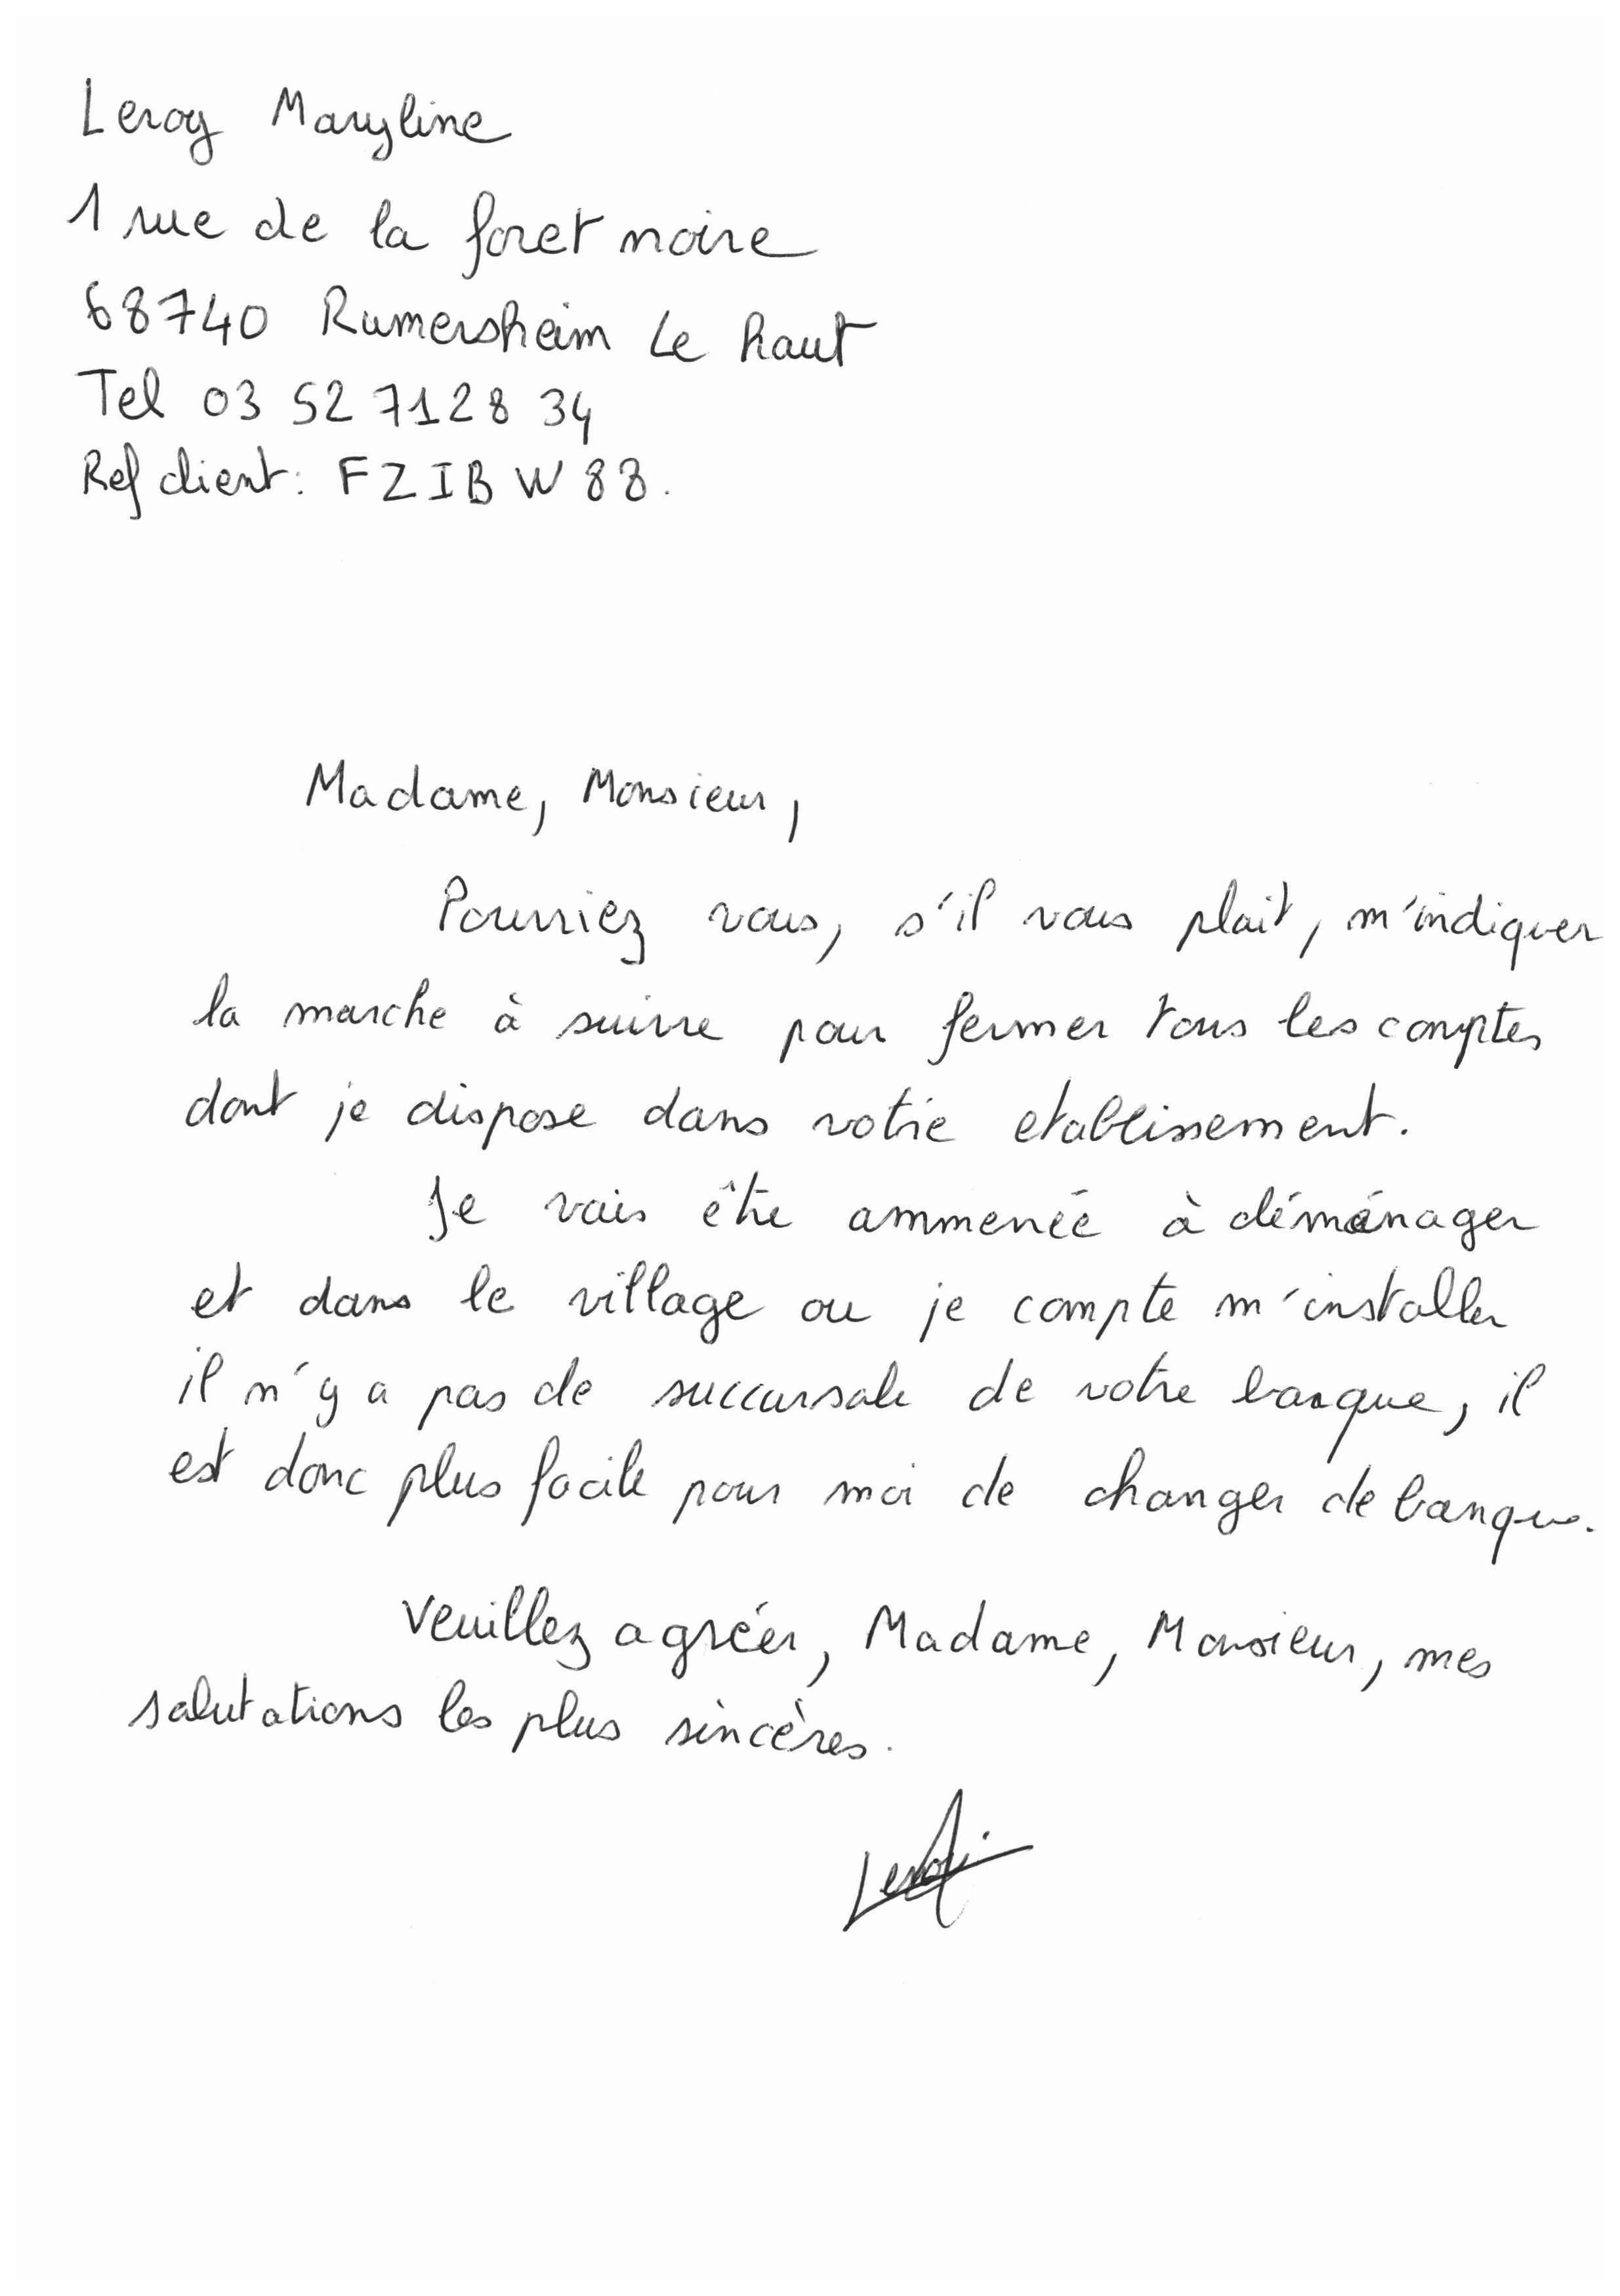 Leroy Maryline
1 rue de la foret noire
68740 Rumersheim Le haut
Tel 03 52 71 28 34
Ref client : FZIBW88.
Madame, Monsieur,
Pourriez vous, s'il vous plait, m'indiquer
la marche à suivre pour fermer tous les comptes
dont je dispose dans votre etablissement.
Je vais être ammenée à déménager
et dans le village ou je compte m'installer
il n'y a pas de succursale de votre banque, il
est donc plus facile pour moi de changer de banque.
Veuillez agréer, Madame, Monsieur, mes
salutations les plus sincères.
Leroy